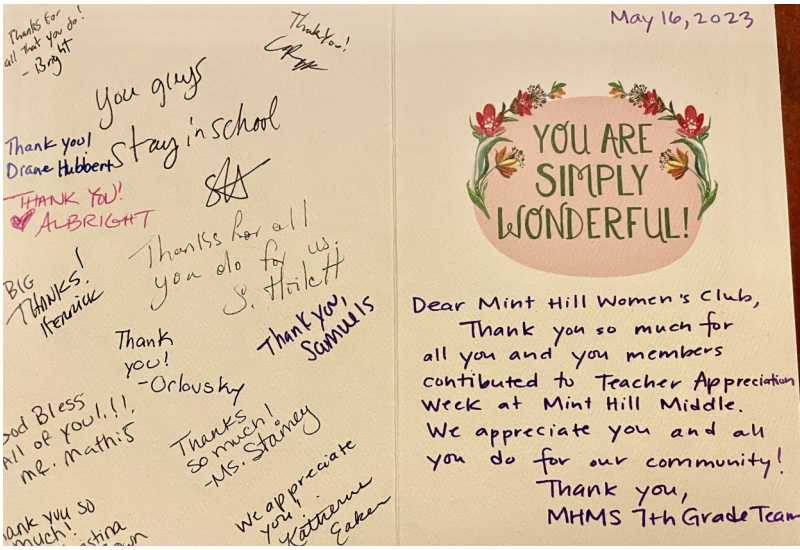 Thanks for
all that you do!
- Bright
Thank you!
You guys
stay in school
Thank you!
Drane Hubbert
THANK YOU!
ALBRIGHT
Thanks for all
you do for us.
BIG
THANKS!
Herrick
Thank you,
Samuels
Thank
you!
-Orlovsky
God Bless
All of you!.!!
Mr. Mathis
Thanks
so much!
-Ms. Stamey
We appreciate
you!
Katherine
Eaken
ank you so
much!
May 16, 2023
YOU ARE
SIMPLY
WONDERFUL!
Dear Mint Hill Women's Club,
Thank you so much for
all you and you members
contibuted to Teacher Appreciation
Week at Mint Hill Middle.
We appreciate you and all
you do for our community!
Thank you,
MHMS 7th Grade Team